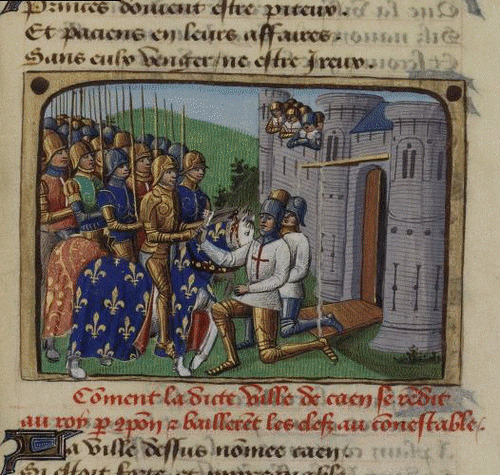 Princes doivent estre piteux.
Et paciens en leurs affaires.
Sans eulx venger ne estre Ireux.
Cōment la dicte ville de caen se rēdit
au roy p 2pōn & baillerēt les clefz au cōnestable.
La ville dessus nōmee caen
Si estoit forte et